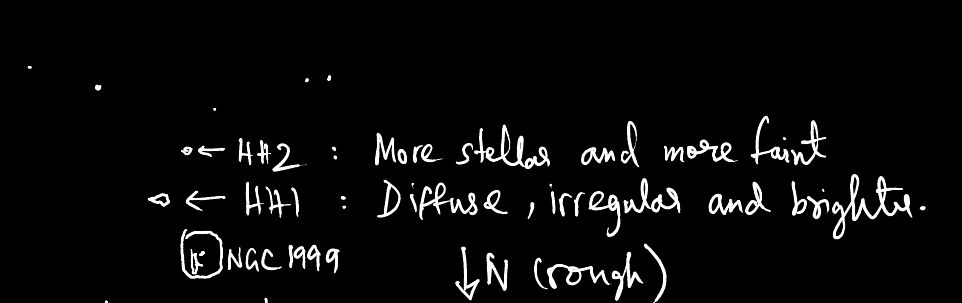 ← HH2 : More stellar and more faint
← HH1 : Diffuse, irregular and brighter.
NGC 1999
↓N (rough)